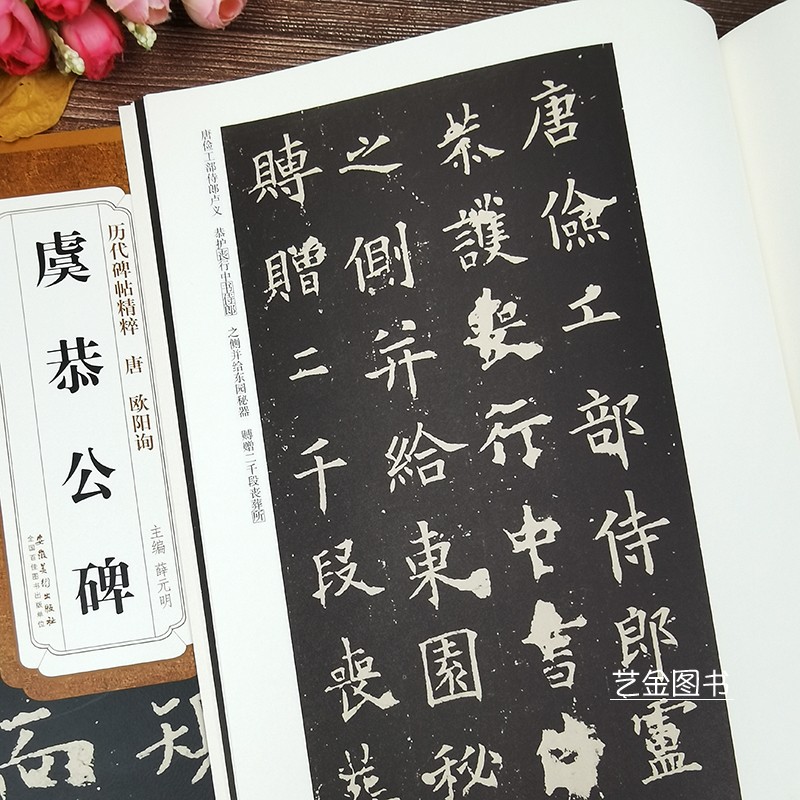 唐儉工部侍郎盧
恭護喪行中書
之側并給東園秘
賻贈二千段喪葬
唐俭工部侍郎卢义 恭护丧行中书侍郎 之侧并给东园秘器 赙赠二千段丧葬所
历代碑帖精粹 唐 欧阳询
虞恭公碑
主编 薛元明
安徽美术出版社
全国百佳图书出版单位
艺金图书